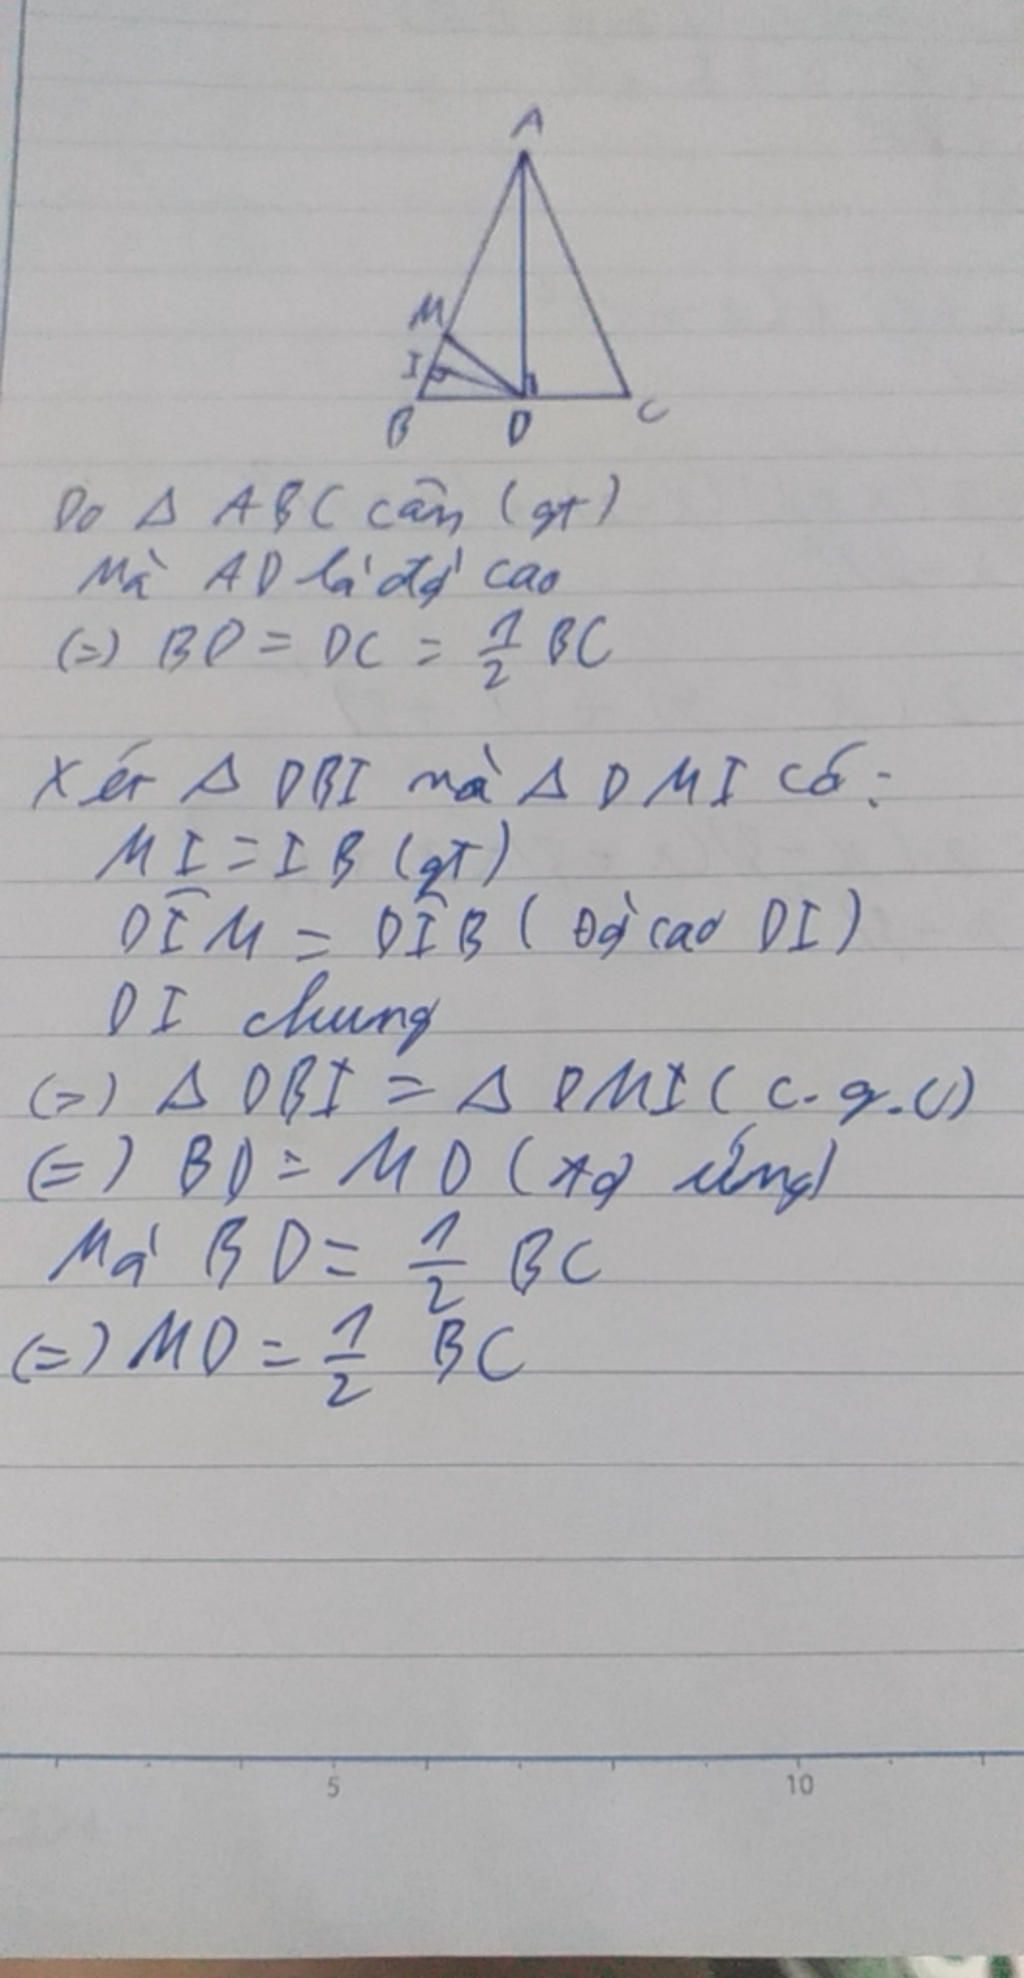 A
M
I
B
D
C
Do Δ ABC cân (gt)
Mà AD là đg' cao
(=) BD = DC = 1/2 BC
Xét Δ DBI mà Δ DMI có:
MI = IB (gT)
DÎM = DÎB ( Đg' cao DI)
DI chung
(=) Δ DBI = Δ DMI ( c.g.c)
(=) BD = MD (tg ứng)
Mà BD = 1/2 BC
(=) MD = 1/2 BC
5
10